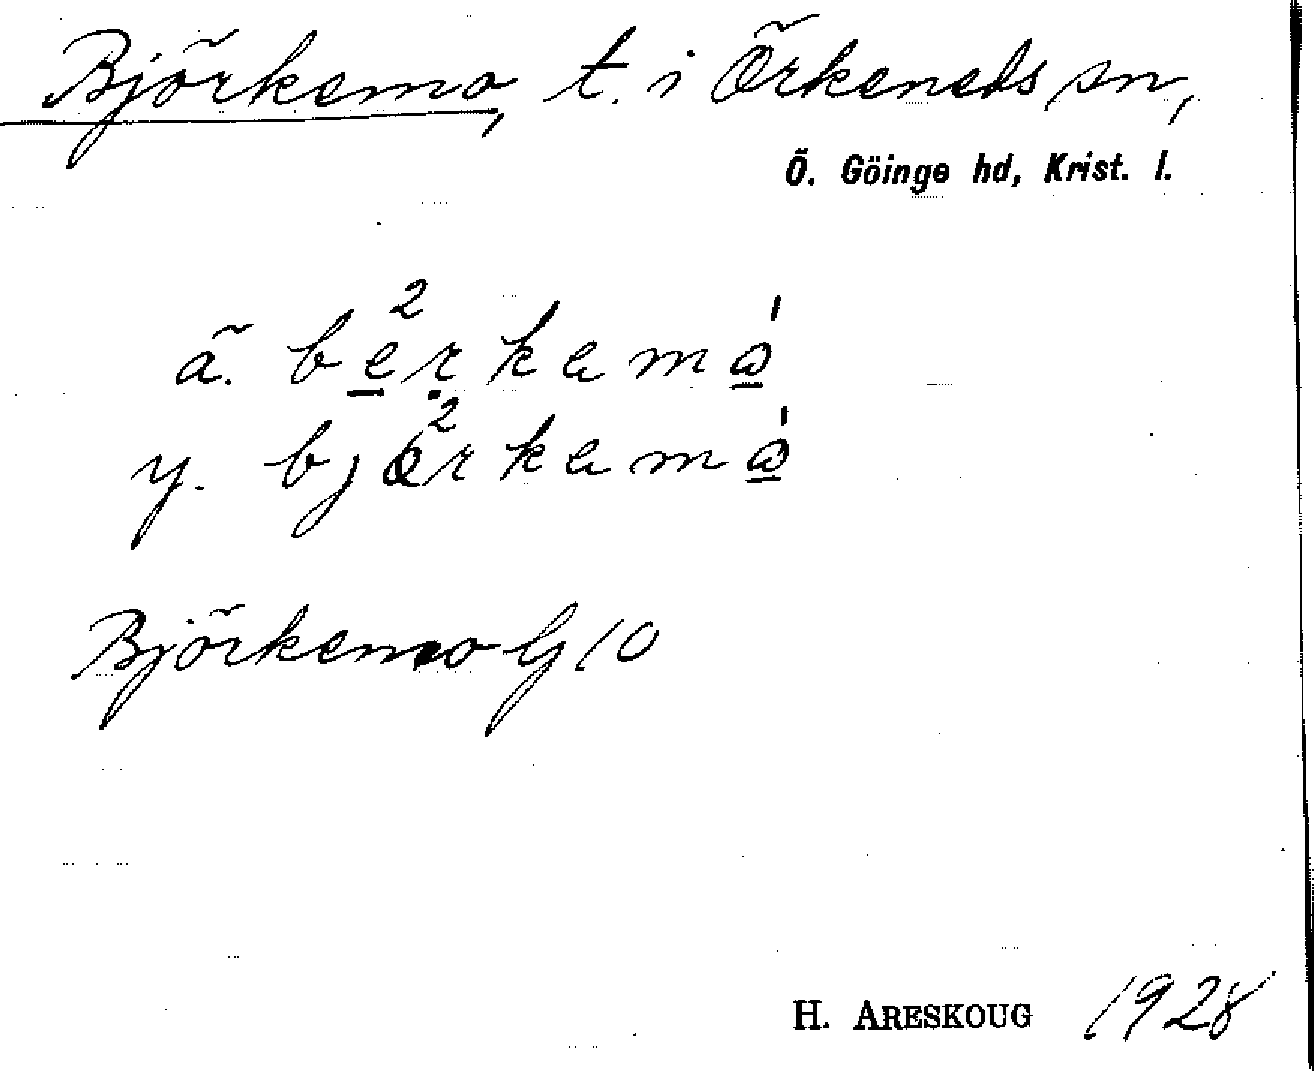 Björkemo, t. i Örkeneds sn,
Ö. Göinge hd, Krist. l.
ä. be²rkemå̍
y. bjö²rkemå̍
Björkemo G 10
H. ARESKOUG 1928